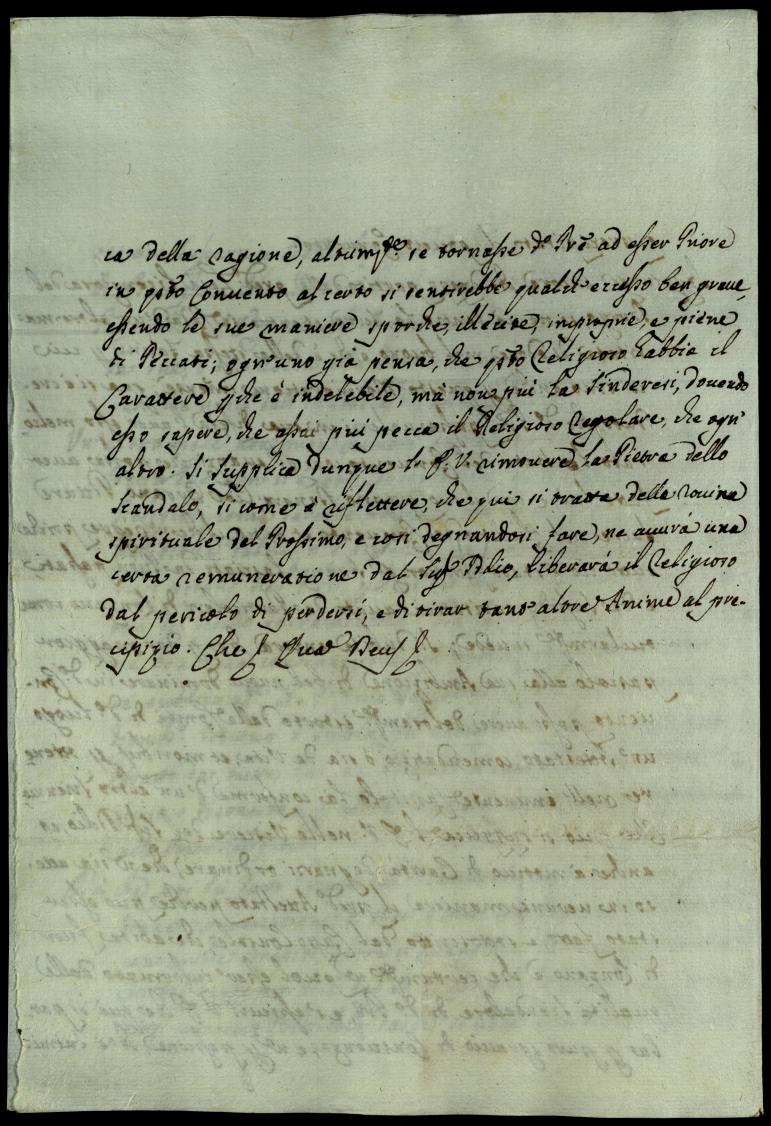 ca della ragione, altrim.te se tornasse d.o Prē ad esser Priore
in q.sto Convento al certo si sentirebbe qualche eccesso ben grave,
essendo le sue maniere sporche, illecite, improprie, e piene
di Peccati; ogn'uno già pensa, che q.sto Religioso habbia il
Carattere che è indelebile, mà non più la sinderesi, dovendo
esso sapere, che assai più pecca il Religioso regolare, che ogn'
altro. Si supplica dunque P. V. rimovere la Pietra dello
scandalo, si come à riflettere, che qui si tratta della rovina
spirituale del Prossimo, e così degnandosi fare, ne averà una
certa remuneratione dal Sig.r Iddio, libererà il Religioso
dal pericolo di perdersi, e di tirar tant'altre Anime al pre-
cipizio. Che Quas Deus